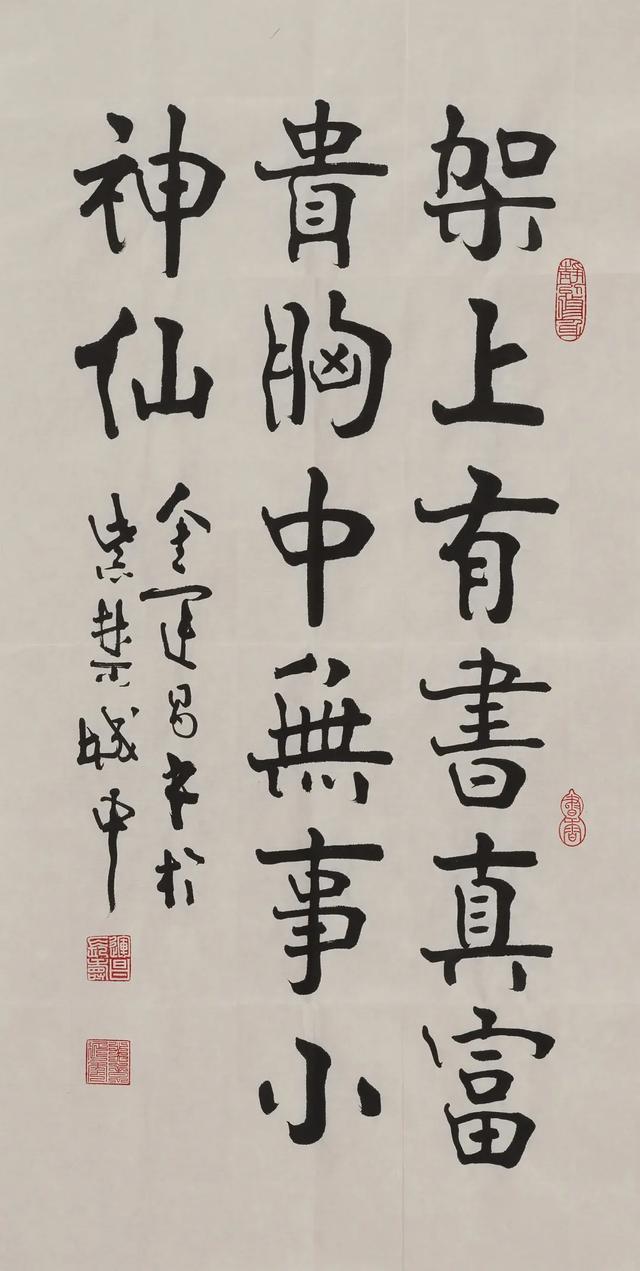 架上有書真富
貴胸中無事小
神仙
金運昌書於
紫禁城中